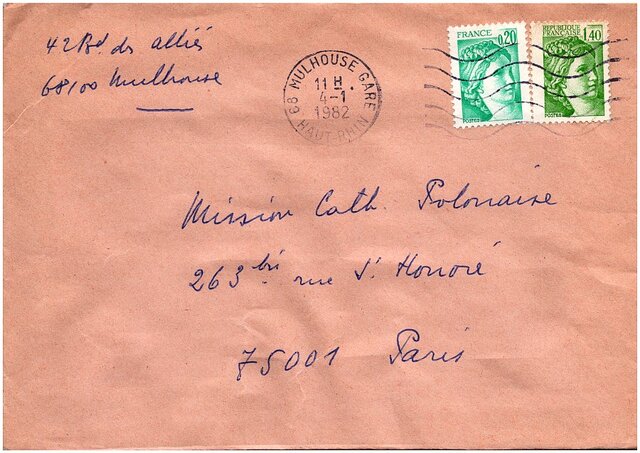 42 Bd. des alliés
68100 Mulhouse
68 MULHOUSE GARE
11 H.
4-1
1982
HAUT-RHIN
FRANCE
0,20
POSTES
REPUBLIQUE
FRANÇAISE
1,40
POSTES
Mission Cath. Polonaise
263 bis rue St Honoré
75001 Paris